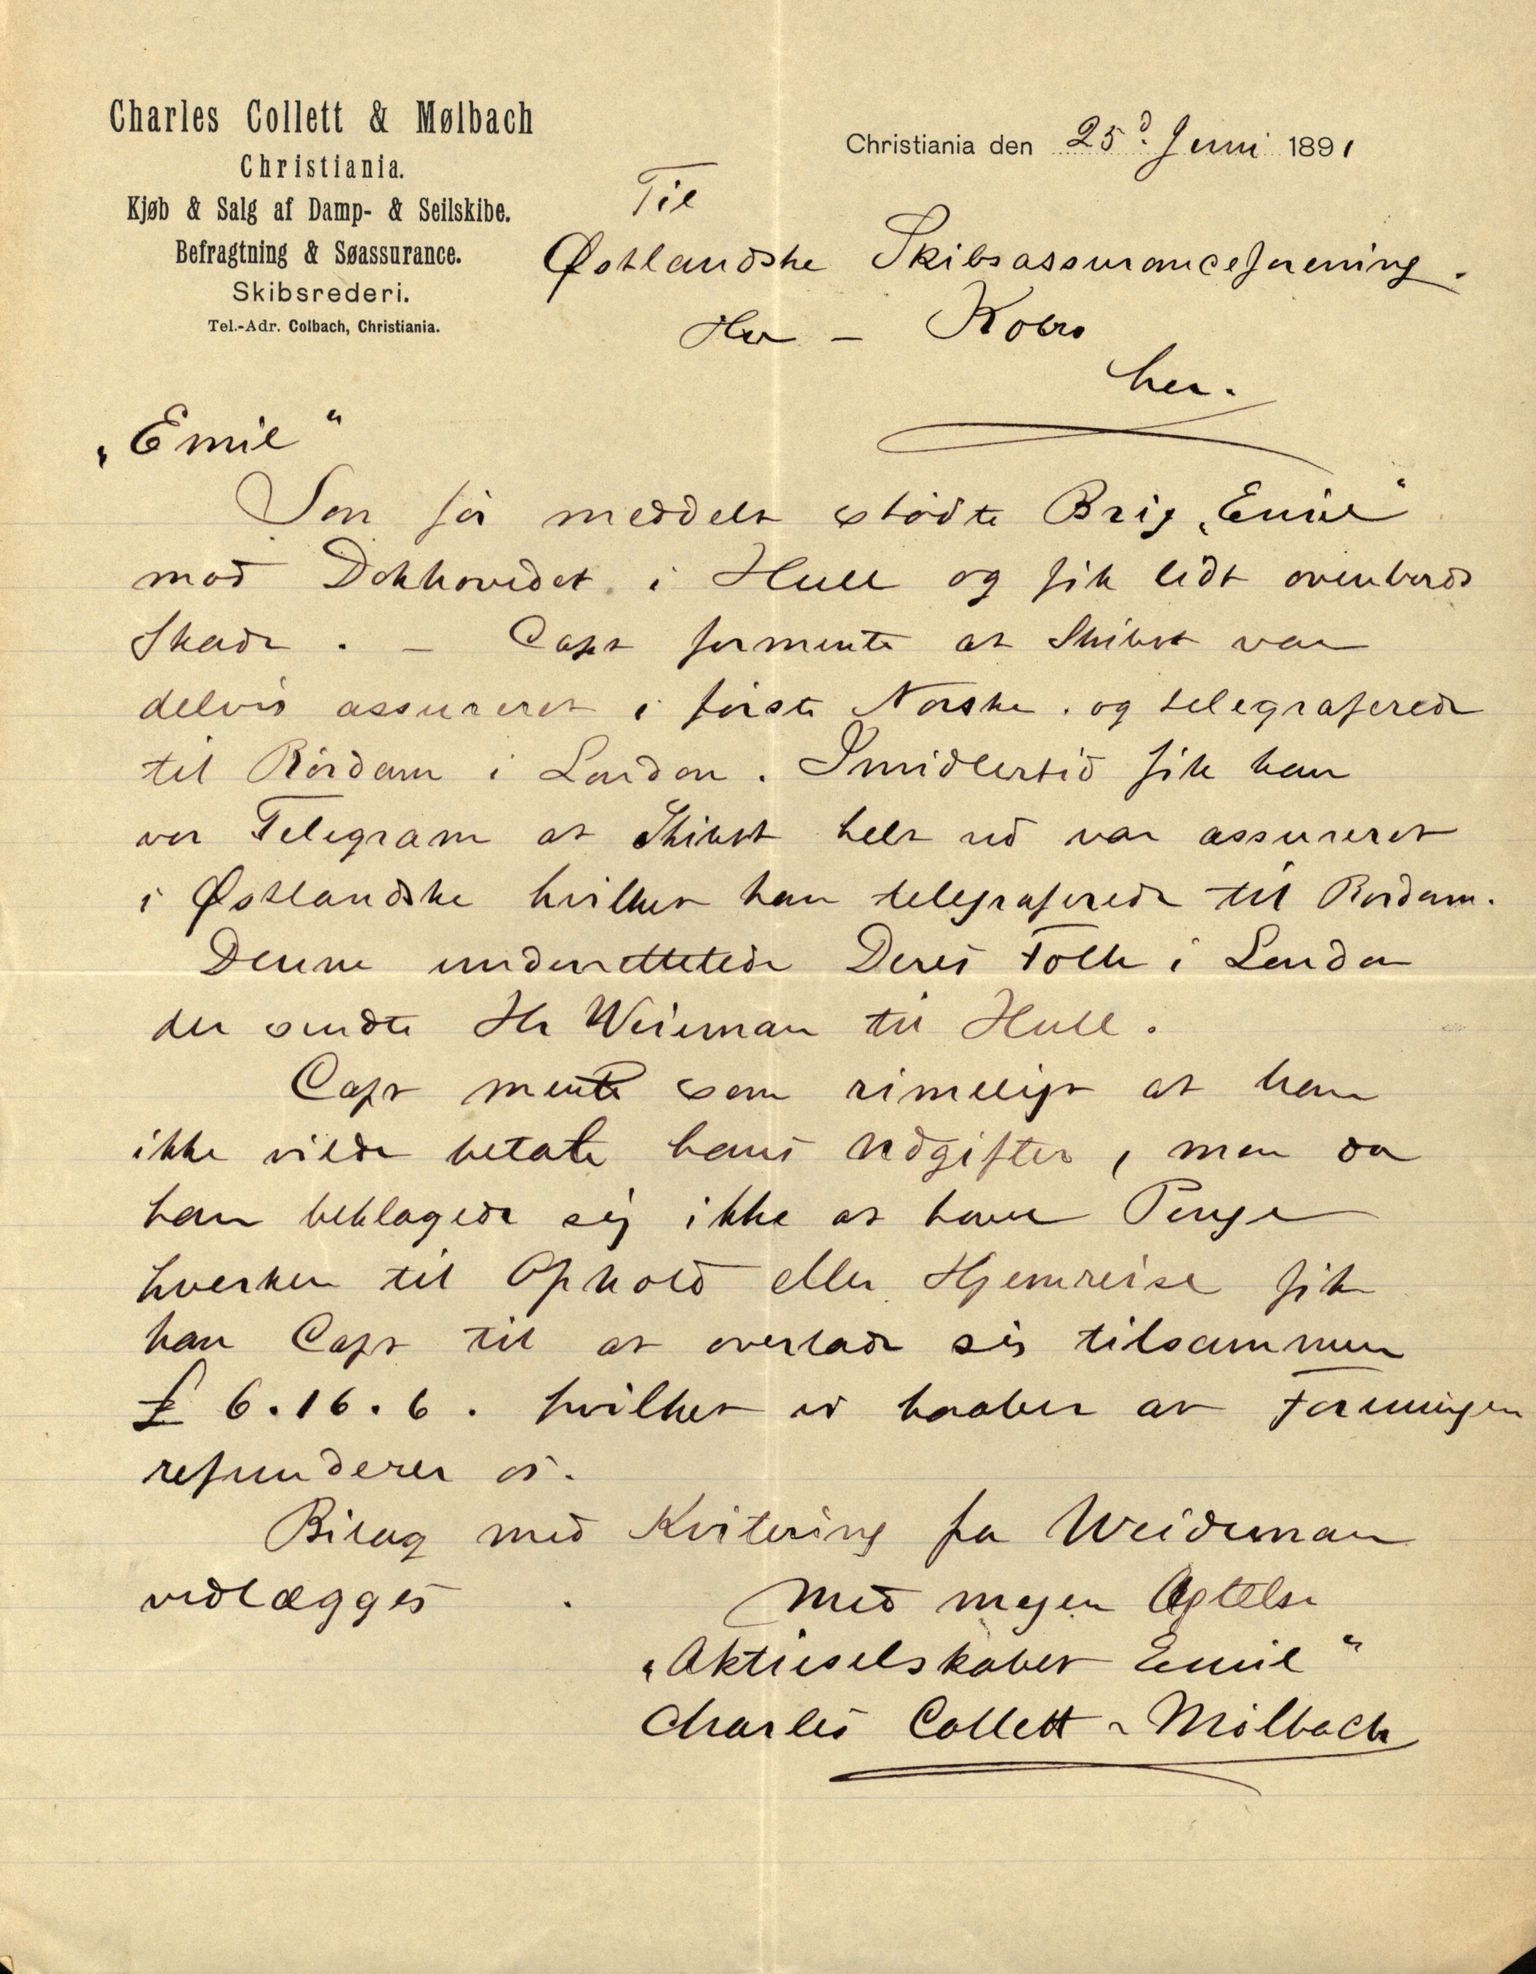 Charles Collett & Mølbach
Christiania.
Kjøb & Salg af Damp- & Seilskibe.
Befragtning & Søassurance.
Skibsrederi.
Tel.-Adr. Colbach, Christiania.
Christiania den 25d Juni 1891
Til
Østlandske Skibsassuranceforening.
Her –
her.
„Emil"
Som før meddelt stødte Brig „Emil"
mod Dokhovedet i Hull og fik lidt ovenbords
Skade. – Capt formente at Skibet var
delvis assureret i første Norske. og telegraferede
til Rördam i London. Imidlertid fik han
vor Telegram at Skibet helt ud var assureret
i Østlandske hvilket han telegraferede til Rördam.
Denne underrettetede Deres Folk i London
der sendte Hr Weieman til Hull.
Capt mente som rimeligt at han
ikke vilde betale hans Udgifter, men da
han beklagede sig ikke at have Penge
hverken til Ophold eller Hjemreise fik
han Capt til at overlade sig tilsammen
£ 6.16.6. hvilket vi haaber at Foreningen
refunderer os.
Bilag med Kvitering fra Weideman
vedlægges.
Med megen Agtelse
„Aktieselskabet Emil"
Charles Collett & Mölbach